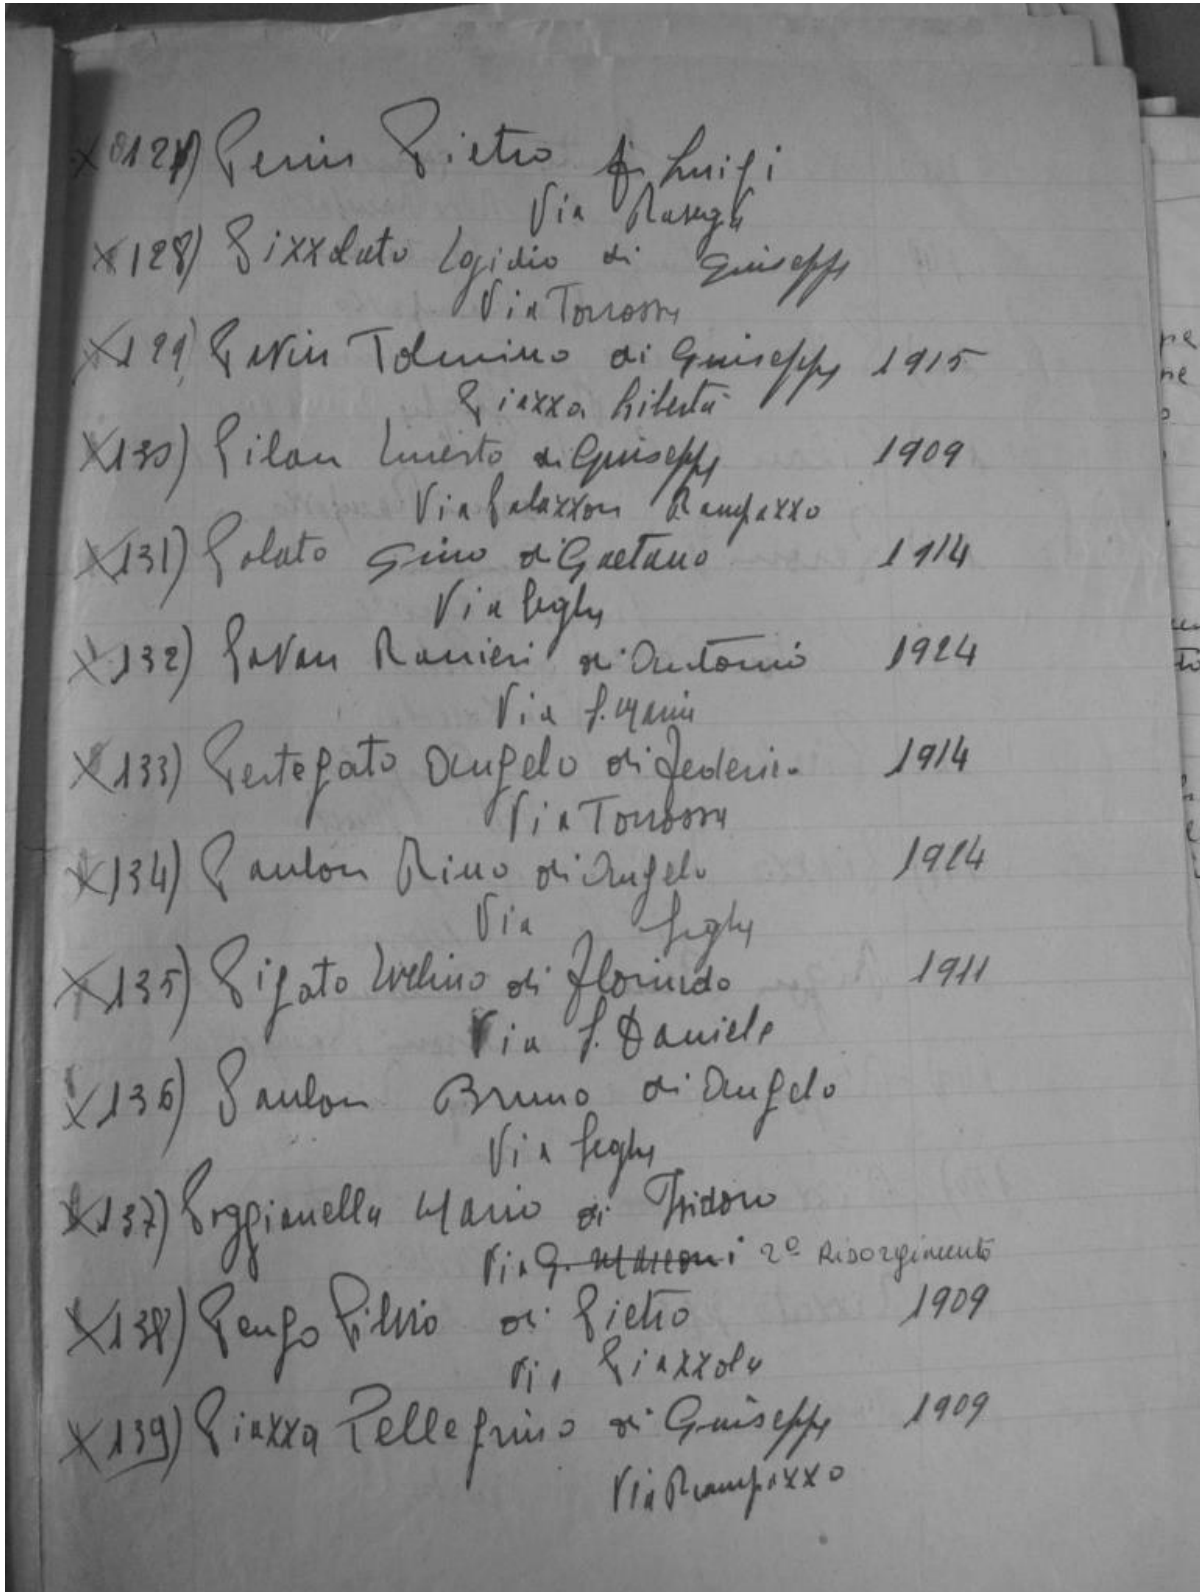 X 127) Penin Pietro fu Luigi
Via Rasega
X 128) Pizzolato Egidio di Giuseppe
Via Torrossa
X 129) Pavin Tolmino di Giuseppe 1915
Piazza Libertà
X 130) Pilan Ernesto di Giuseppe 1909
Via Palazzon Rampazzo
X 131) Polato Gino di Gaetano 1914
Via Seghe
X 132) Pavan Ranieri di Antonio 1924
Via S. Maria
X 133) Pertegato Angelo di Federico 1914
Via Torrossa
X 134) Paulon Rino di Angelo 1924
Via Seghe
X 135) Pigato Evelino di Florindo 1911
Via S. Daniele
X 136) Paulon Bruno di Angelo
Via Seghe
X 137) Poggianella Mario di Isidoro
Via G. Marconi 2º Risorgimento
X 138) Pengo Silvio di Pietro 1909
Via Piazzola
X 139) Piazza Pellegrino di Giuseppe 1909
Via Rampazzo